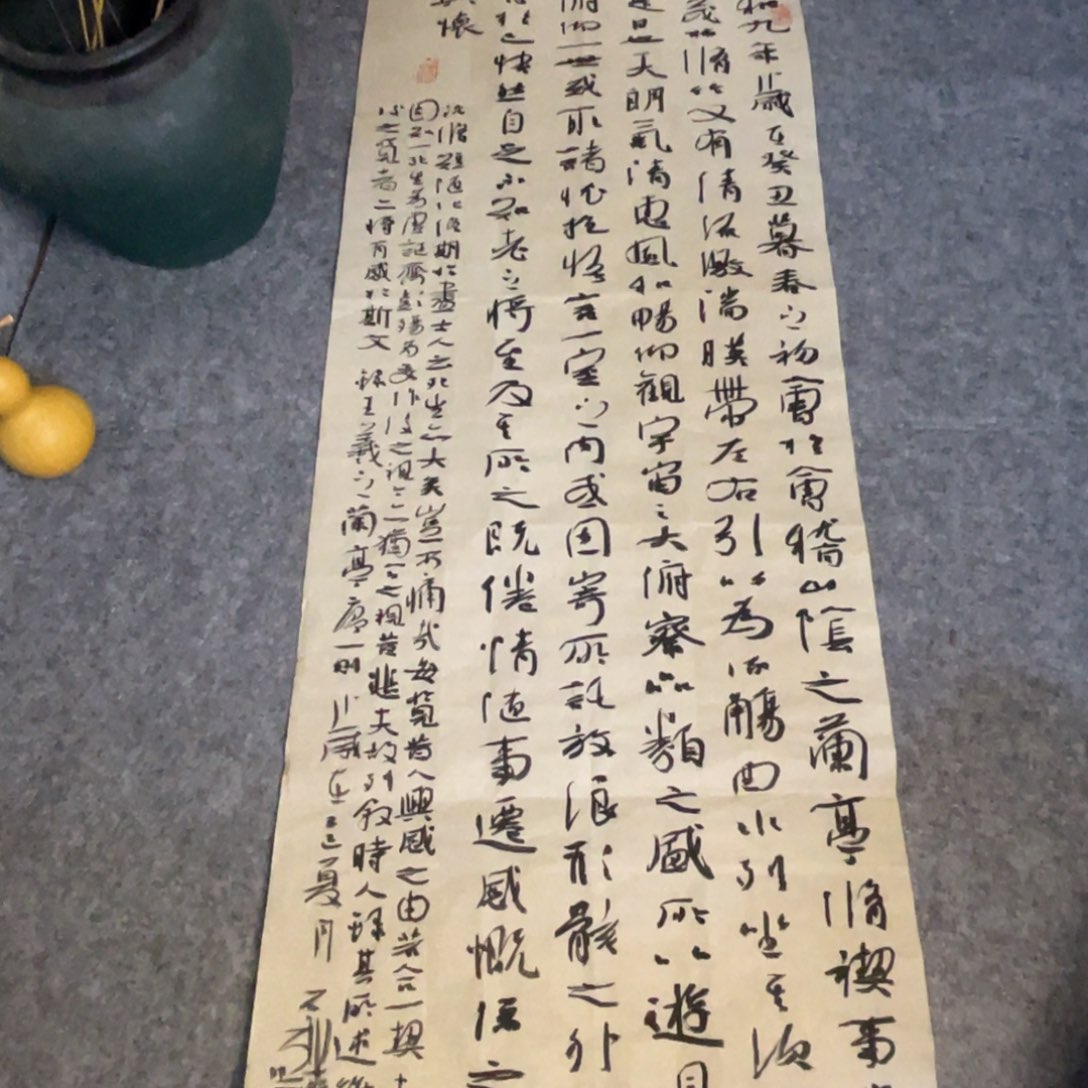 和九年歲在癸丑暮春之初會於會稽山陰之蘭亭脩禊事
茂林脩竹又有清流激湍映帶左右引以為流觴曲水列坐其次
是日也天朗氣清惠風和暢仰觀宇宙之大俯察品類之盛所以遊目
俯仰一世或取諸懷抱悟言一室之內或因寄所託放浪形骸之外
於己快然自足不知老之將至及其所之既倦情隨事遷感慨係之
懷
況脩短隨化終期於盡古人云死生亦大矣豈不痛哉每覽昔人興感之由若合一契
固知一死生為虛誕齊彭殤為妄作後之視今亦猶今之視昔悲夫故列敘時人錄其所述
後之覽者亦將有感於斯文 錄王羲之蘭亭序一則 歲在己巳夏月